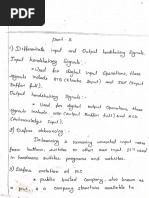 part B
1) Differentiate input and Output handshaking Signals.
Input handshaking Signals:-
* Used for digital input Operations, these
signals include STB (Strobe Input) and IBF (Input
Buffer full).
Output handshaking Signals:-
* Used for digital output Operations, these
signals include OBF (Output Buffer full) and ACK
(Acknowledge Input).
2) Define debouncing:-
Debouncing is removing unwanted input noise
from buttons, switches or other user input. It is used
in hardware switches programs and websites.
3) Define mutation of PLC
A public limited company, also known as
a PLC, is a company structure available to